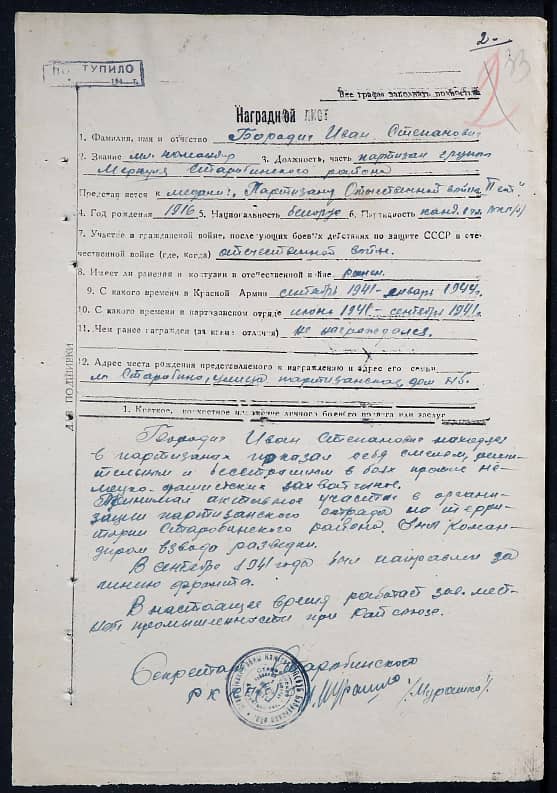 2.-
33
2
ПОСТУПИЛО
194 г.
Все графы заполнять полностью
Наградной лист
1. Фамилия, имя и отчество Бородич Иван Степанович
2. Звание мл. командир 3. Должность, часть партизан группы
Меркуля Старобинского района
Представляется к медали: "Партизану Отечественной войны II ст"
4. Год рождения 1916 5. Национальность белорус 6. Партийность канд. в чл.
7. Участие в гражданской войне, последующих боевых действиях по защите СССР в оте-
чественной войне (где, когда) отечественной войн.
8. Имеет ли ранения и контузии в отечественной войне ранен.
9. С какого времени в Красной Армии сентябрь 1941 - январь 1944г.
10. С какого времени в партизанском отряде июнь 1941 - сентябрь 1941г.
11. Чем ранее награжден (за какие отличия) не награждался.
12. Адрес места рождения представляемого к награждению и адрес его семьи
м. Старобино, улица партизанская, дом
ДЛЯ ПОДШИВКИ
1. Краткое, конкретное изложение личного боевого подвига или заслуг
Бородич Иван Степанович находясь
в партизанах показал себя смелым, реши-
тельным и бесстрашным в боях против не-
мецко-фашистских захватчиков.
Принимал активное участие в органи-
зации партизанского отряда на терри-
тории Старобинского района. Был коман-
диром взвода разведки.
В сентябре 1941 года был направлен за
линию фронта.
В настоящее время работает зав. мест-
ной промышленности при Райсоюзе.
Секретарь Старобинского
РК Мурашко /Мурашко/.